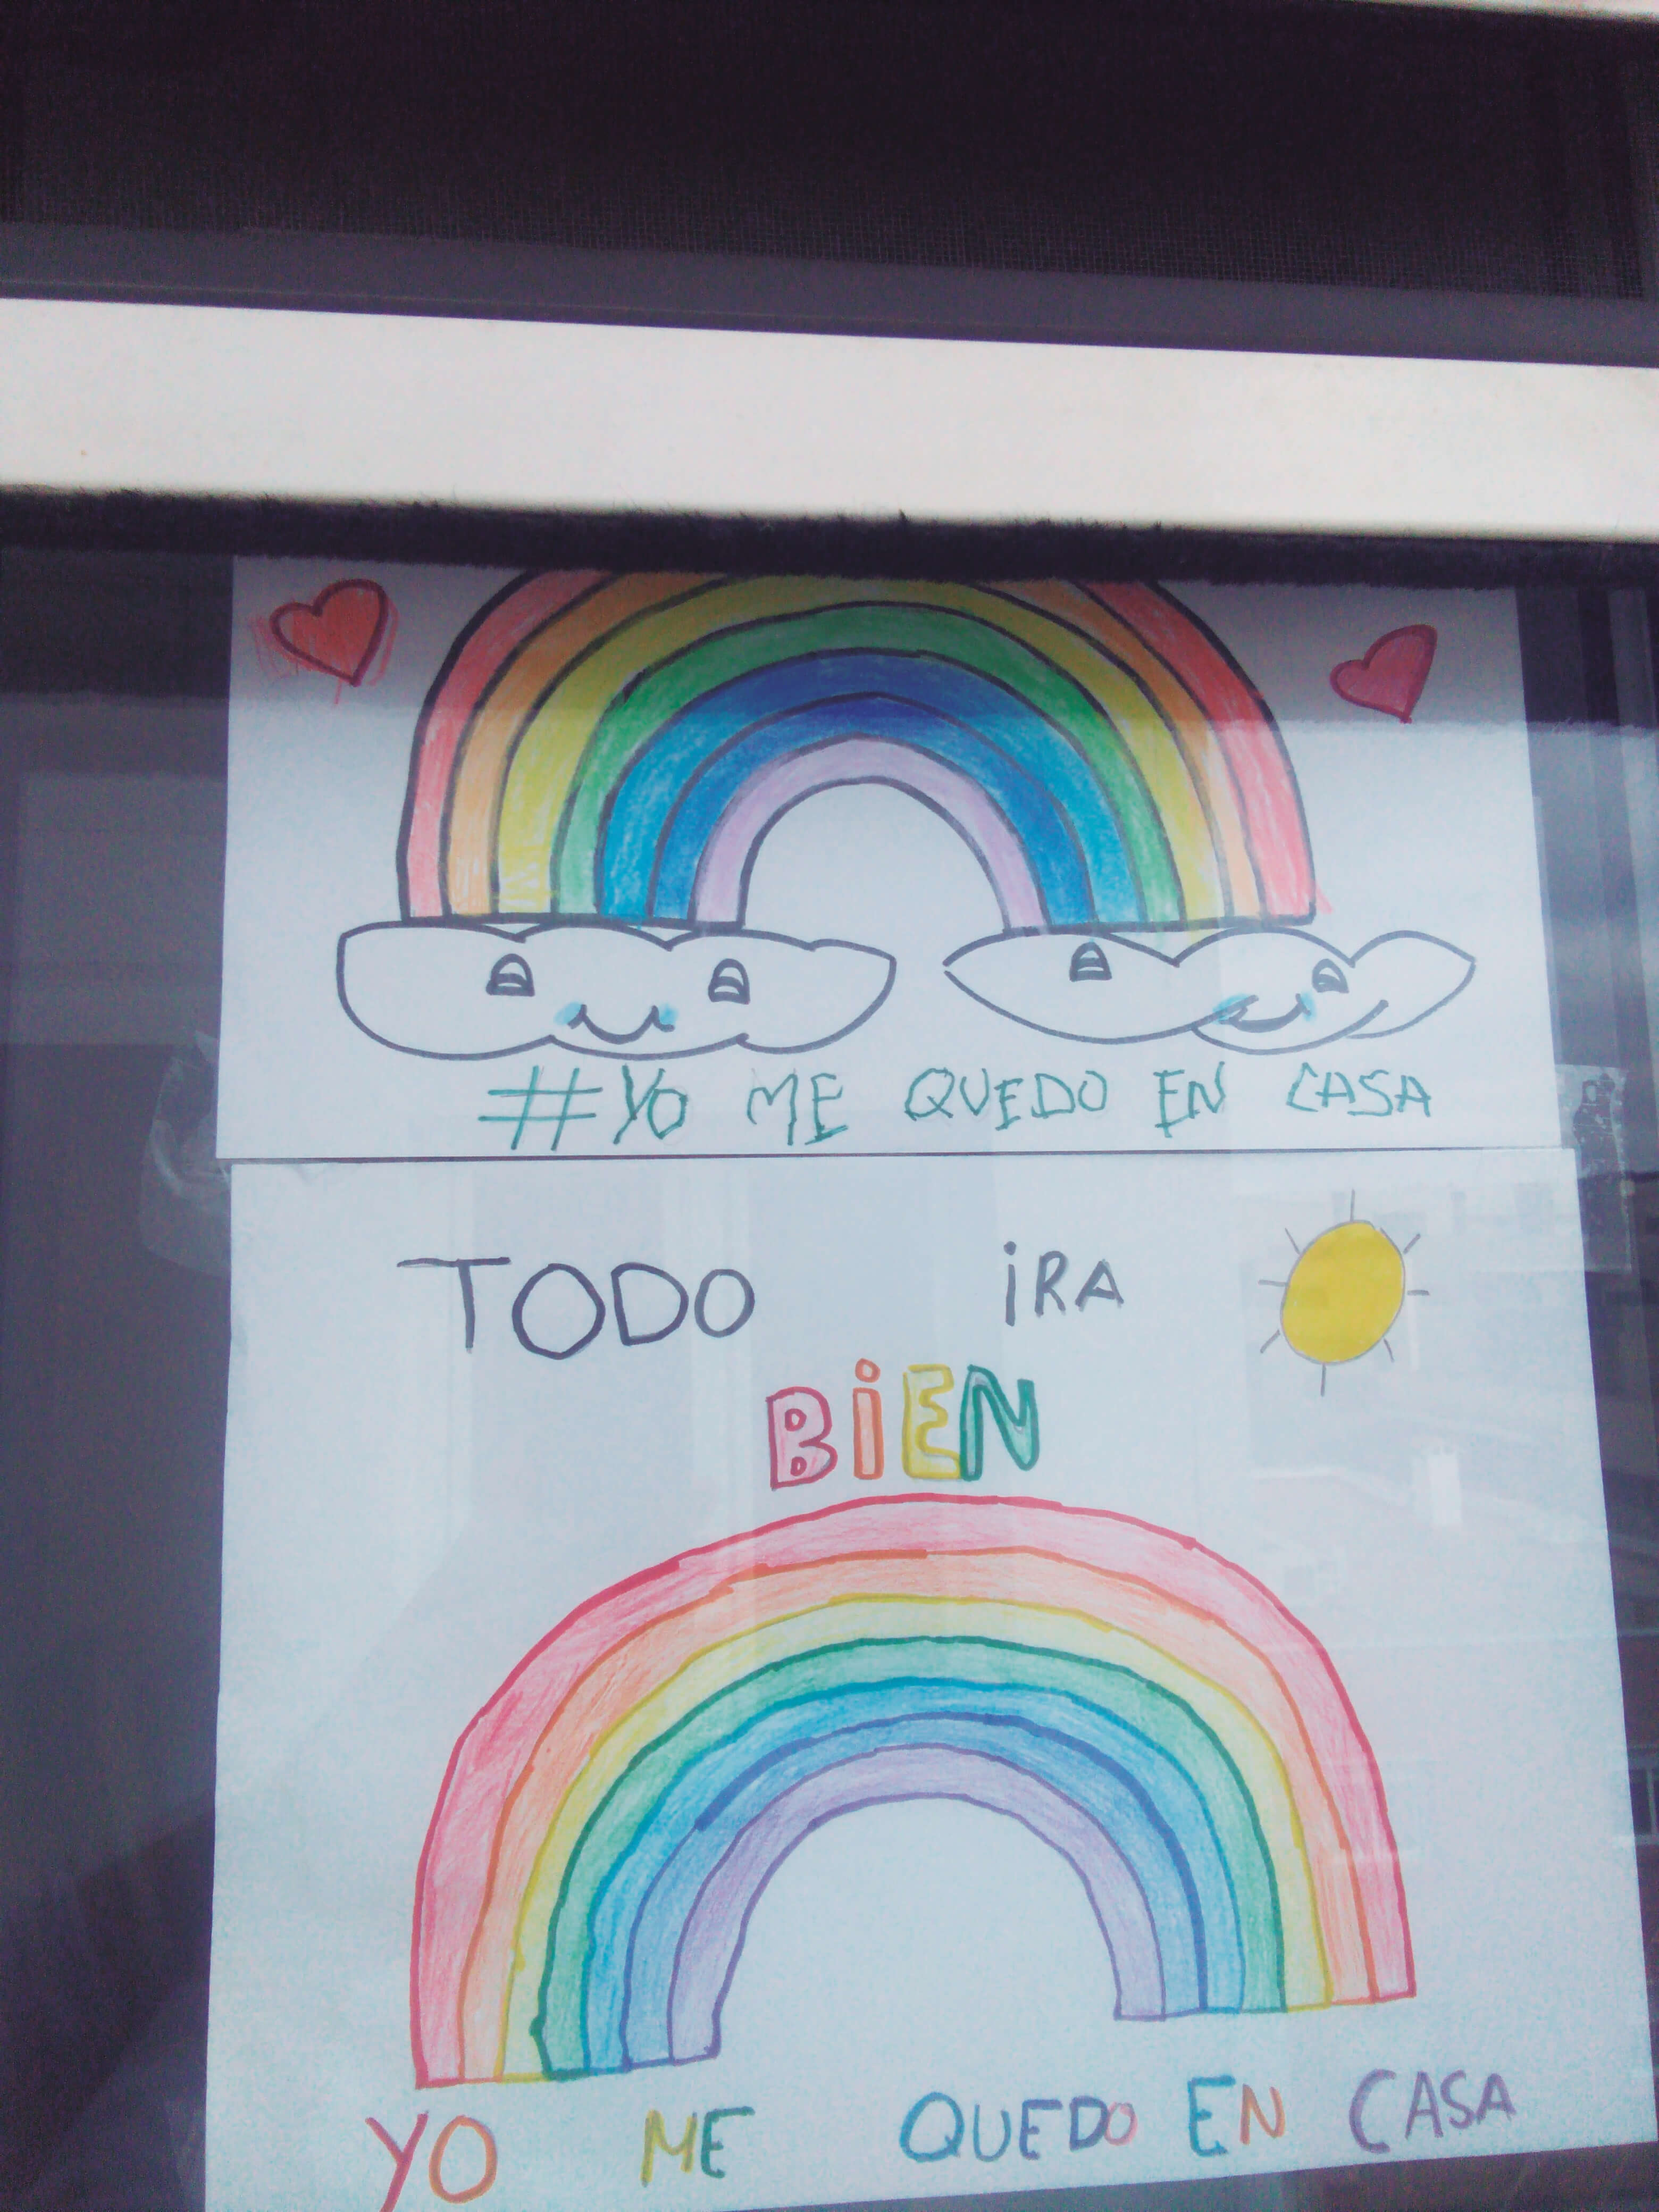 #YO ME QUEDO EN CASA
TODO iRA
BiEN
YO ME QUEDO EN CASA